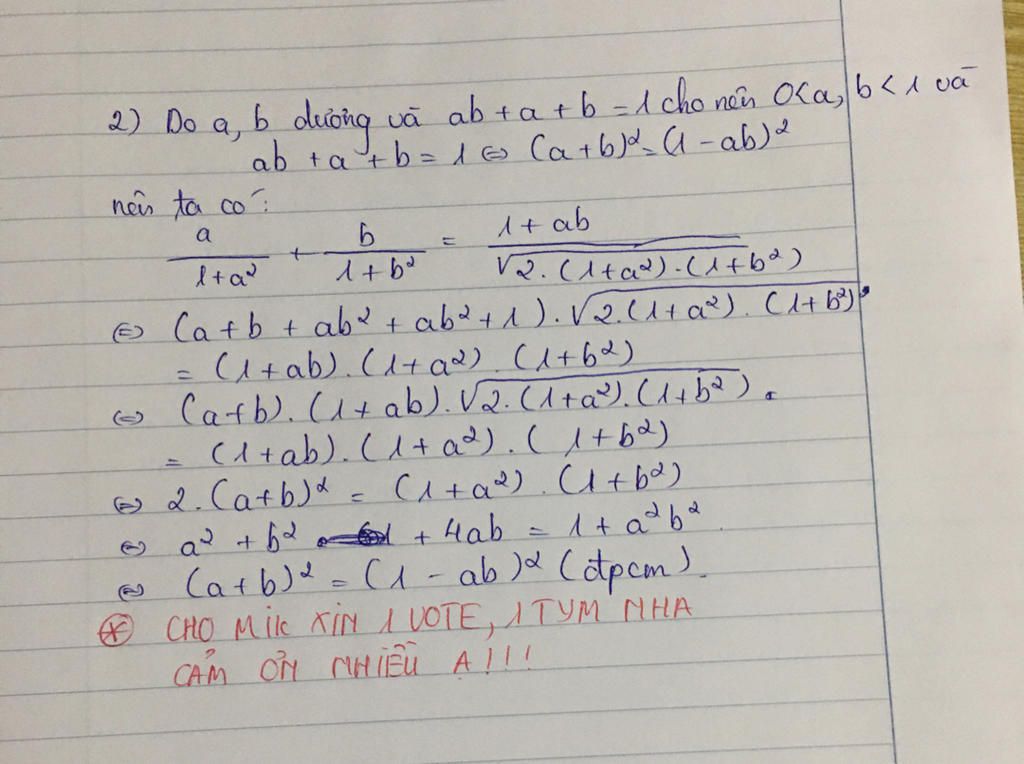 2) Do a, b dương và ab + a + b = 1 cho nên 0<a, b < 1 và
ab + a + b = 1 ⇔ (a+b)² = (1 - ab)²
nên ta có:
a/(1+a²) + b/(1+b²) = (1 + ab)/√2.(1+a²).(1+b²)
⇔ (a+b + ab² + ab² + 1).√2.(1+a²).(1+b²)
= (1+ab).(1+a²).(1+b²)
⇔ (a+b).(1+ab).√2.(1+a²).(1+b²).
= (1+ab).(1+a²).(1+b²)
⇔ 2.(a+b)² = (1+a²).(1+b²)
⇔ a² + b² + 4ab = 1 + a²b².
⇔ (a+b)² = (1 - ab)² (đpcm).
⊛ CHO MIK XIN 1 VOTE, 1 TYM NHA
CẢM ƠN NHIỀU Ạ!!!